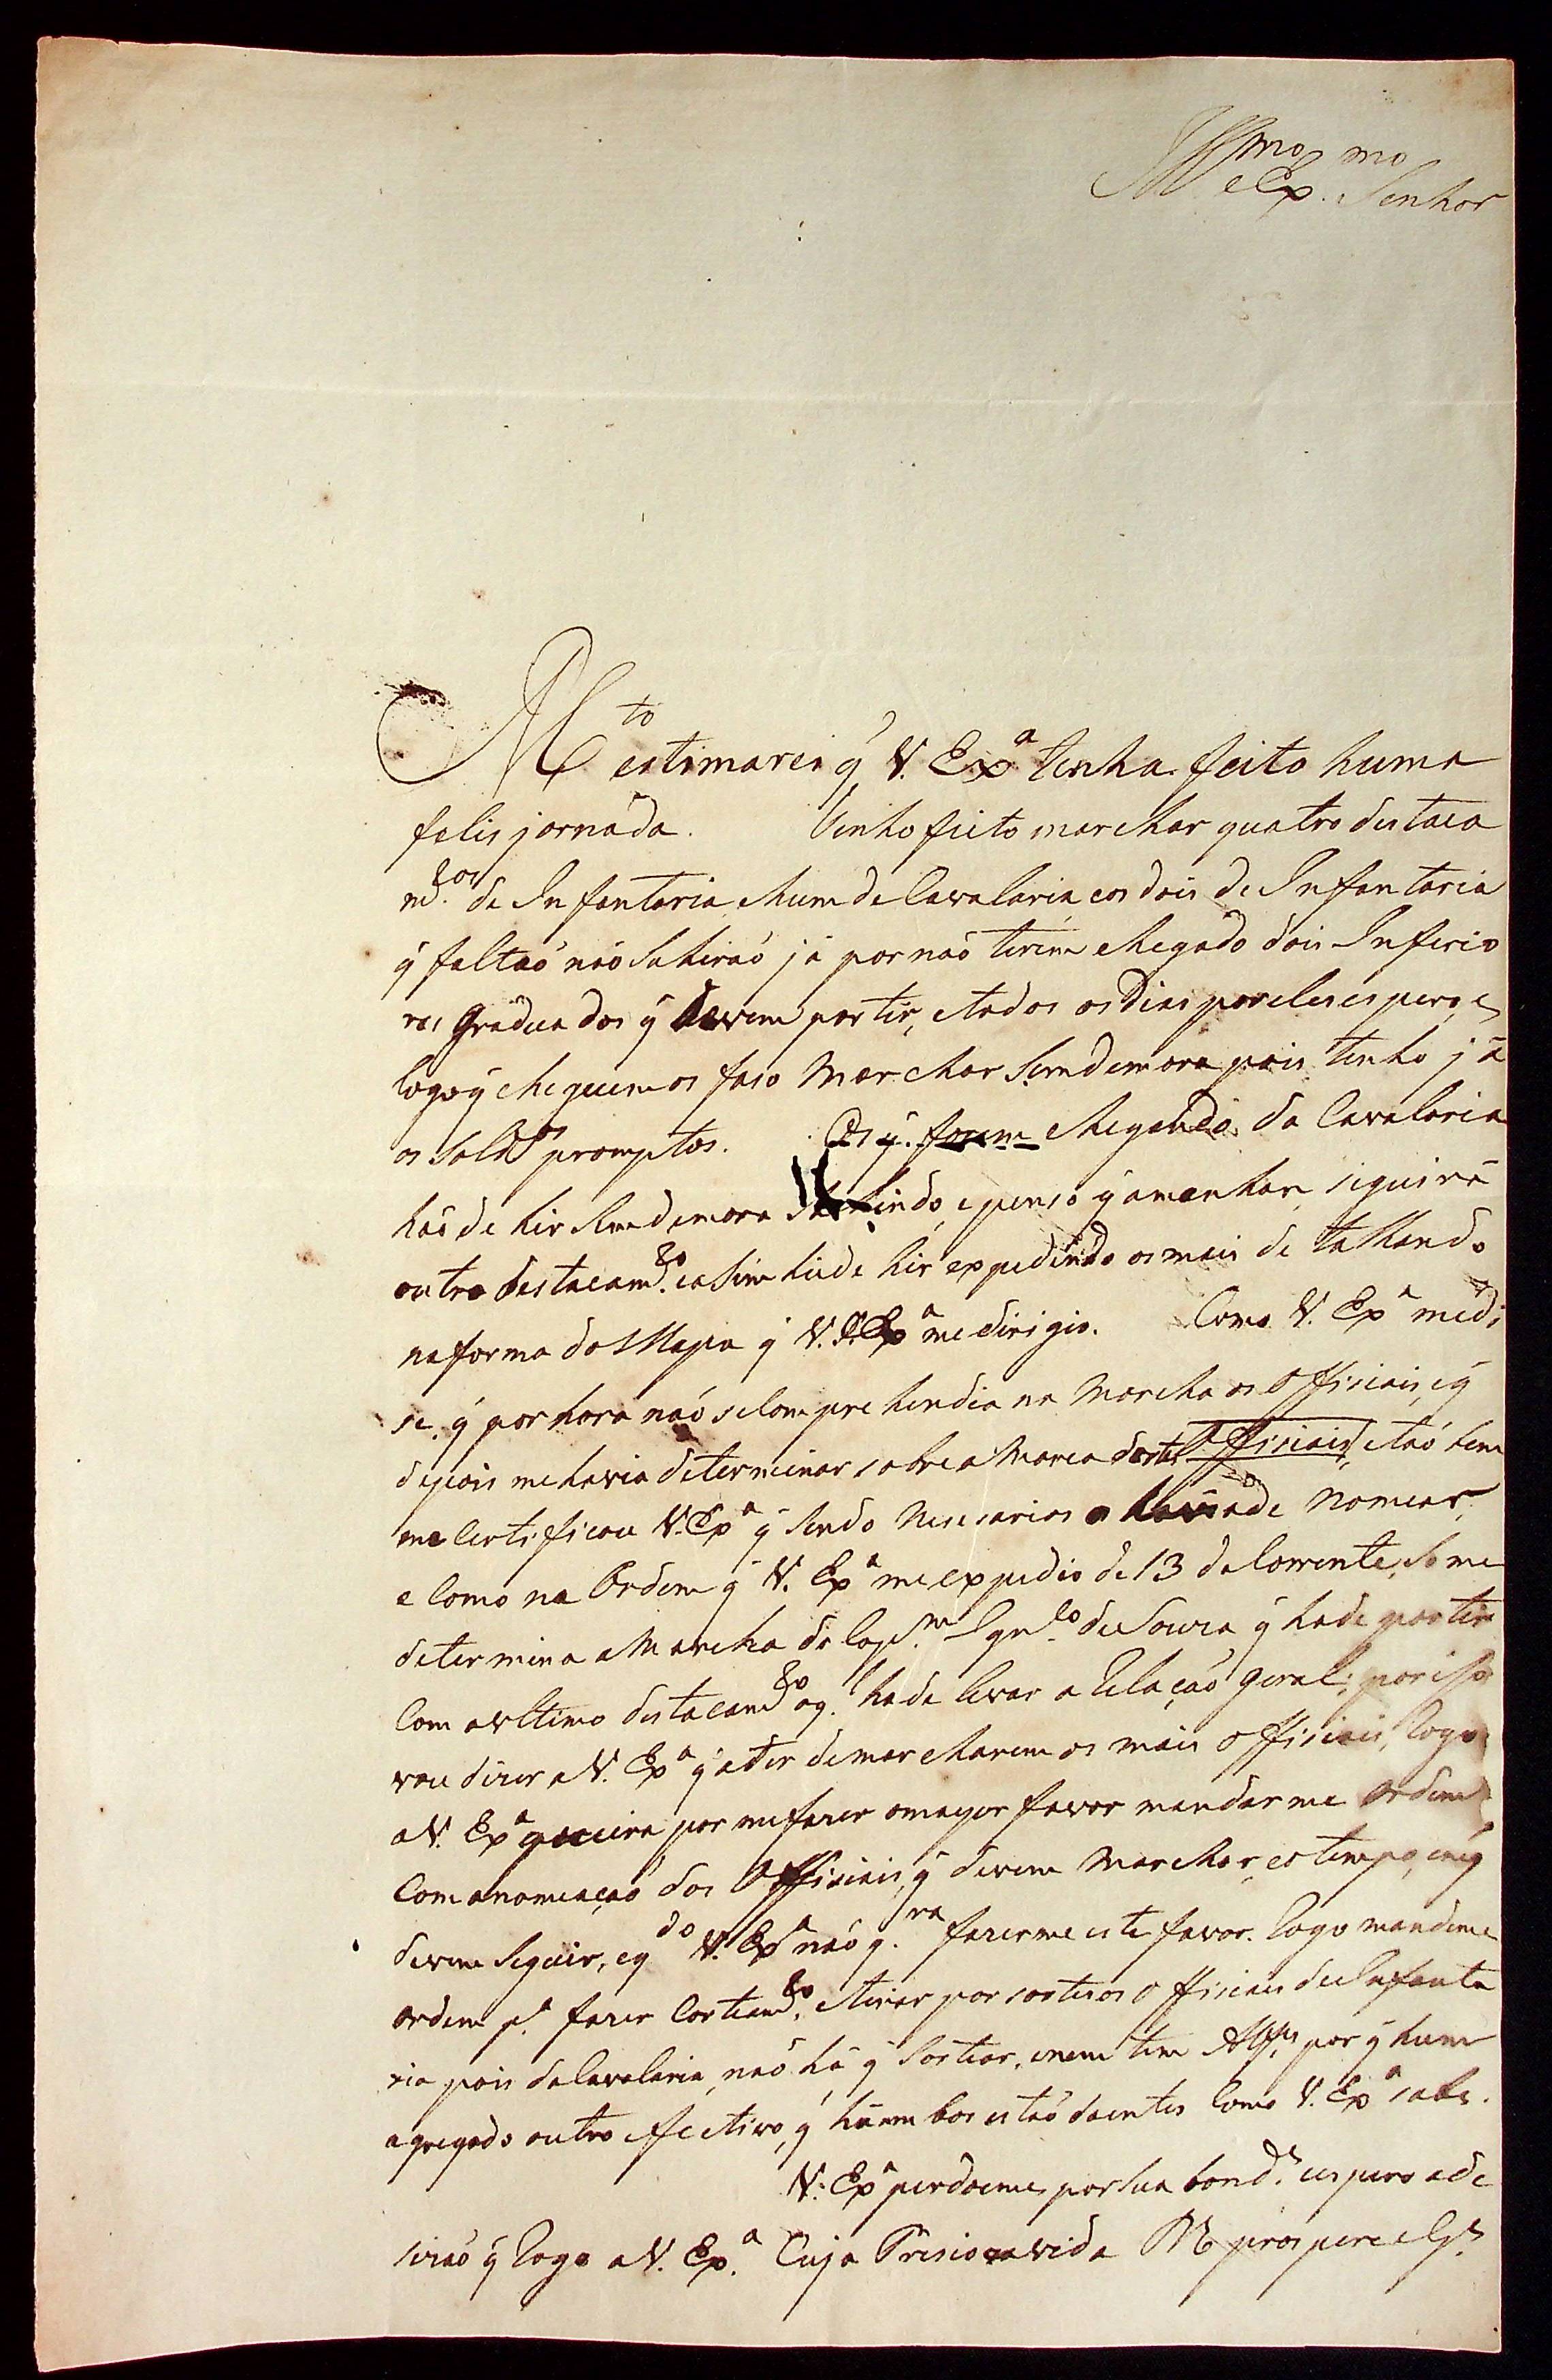 Ill.mo e Ex.mo Senhor
M.to estimarei q̃ V. Ex.a tenha feito huma
felis jornada. Tenho feito marchar quatro destaca
m.tos de Infantaria, e hum de Cavalaria, e os dois de Infantaria
q̃ faltaõ naõ sahiraõ já por naõ terem chegado dois Inferio
res Graduados q̃ devem partir, e todos os Dias por eles espero, e
logo q̃ cheguem os faso Marchar sem demora pois tenho já
os Sold.os promptos. Os q̃ forem chegando da Cavalaria
haõ de hir sem demora sahindo, e penso q̃ amenhan siguirá
outro destacam.to e asim hirde hir expedindo os mais detalhando
na forma do Mapa q̃ V. Ex.a me dirigio. Como V. Ex.a me di
se q̃ por hora naõ se Comprehendia na Marcha os Officiais, e q̃
depois me havia determinar sobre a Marca destes Officiais, e taõ bem
me Certificou V. Ex.a q̃ sendo nesesarios os havia de nomear,
e Como na Ordem q̃ V. Ex.a me expedio de 13 do Corrente, so me
determina a Marcha do Cap.m Ign.co de Souza q̃ hade partir
Com o ultimo destacam.to o q.l hade levar a Relaçaõ geral; por isso
vou dizer a V. Ex.a q̃ a ter de marcharem os mais Officiais, Rogo
a V. Ex.a queira por me fazer o mayor favor mandar me Ordem
Com a nomeaçaõ dos Officiais, q̃ devem Marchar, e o tempo, em q̃
devem Seguir, e q.do V. Ex.a naõ q.ra fazer me este favor. Rogo mandeme
ordem p.a fazer Corteam.to e tirar por sortes os Officiais de Infanta
ria pois da Cavalaria, naõ há q̃ Sortear, e nem tem Alf.es por q̃ hum
agregado outro efectivo, q̃ há ambos estaõ doentes Como V. Ex.a sabe.
V. Ex.a perdoeme, por sua bond.e e espero a de
cisaõ q̃ Rogo a V. Ex.a Cuja Presioza vida D.s prospere e G.e